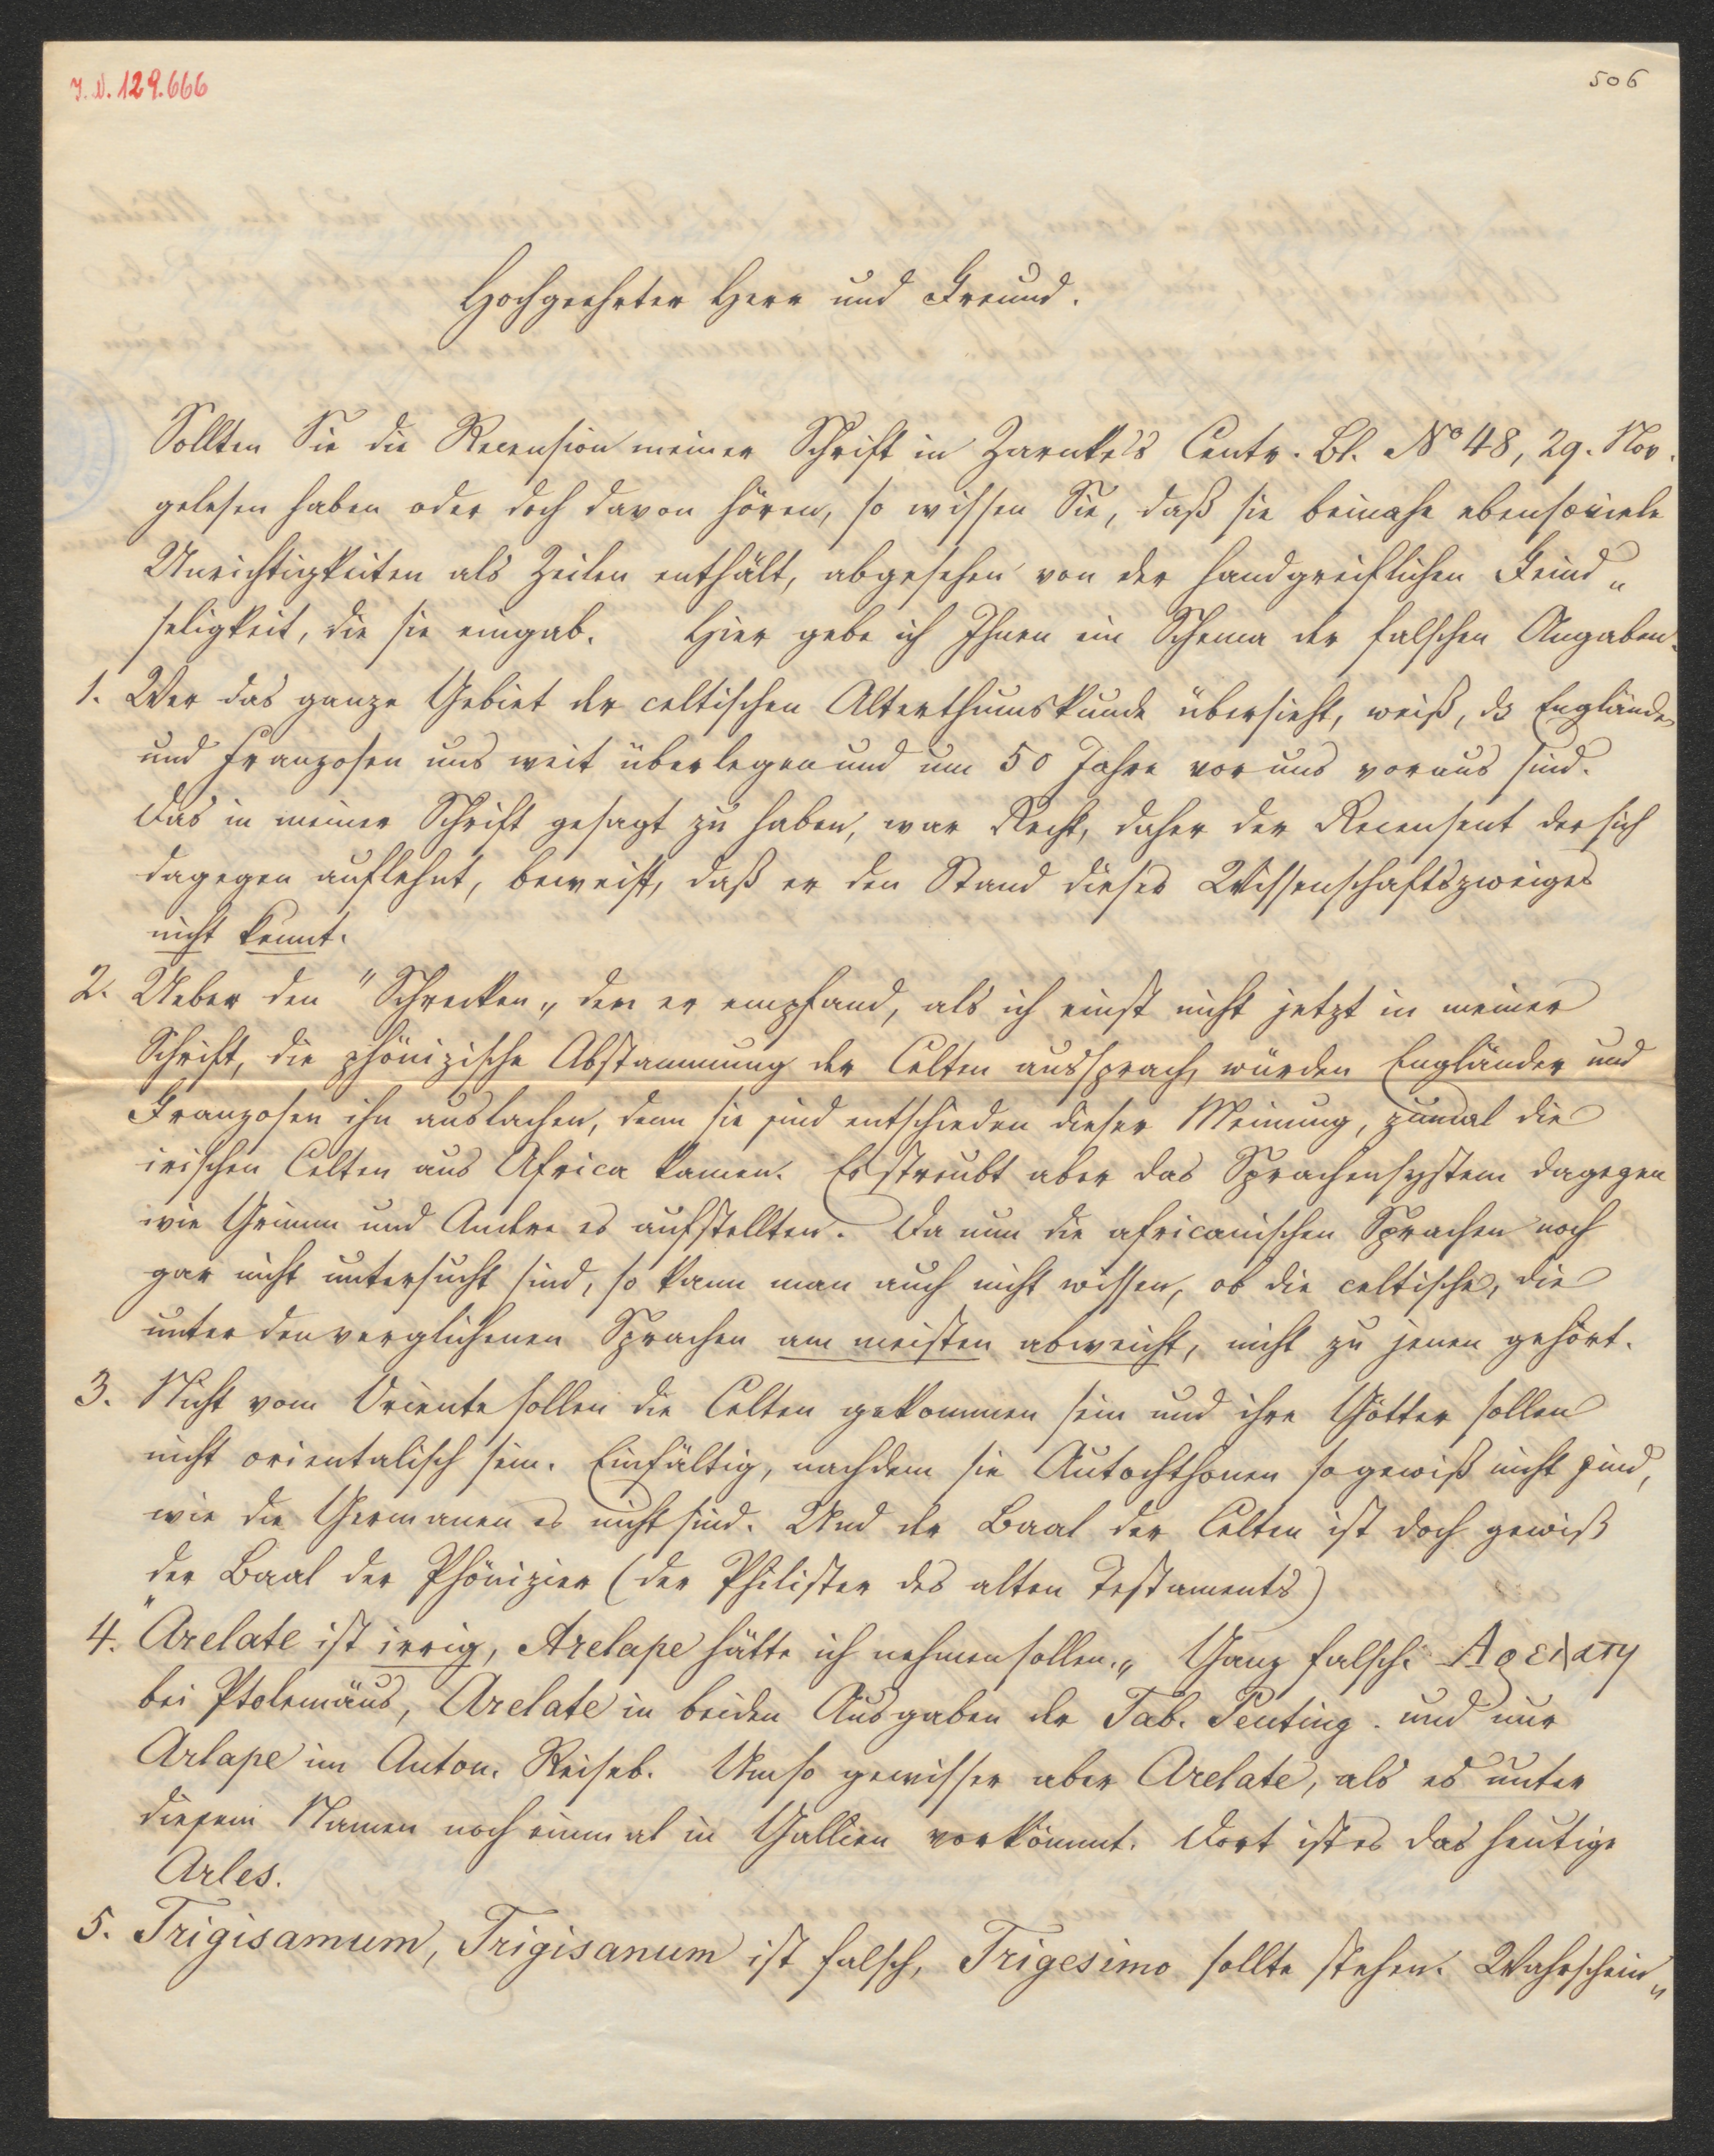 J.N. 129.666
506
Hochgeehrter Herr und Freund.
Sollten Sie die Recension meiner Schrift in Zarnke's Centr. Bl. No 48, 29. Nov.
gelesen haben oder doch davon hören, so wissen Sie, daß sie beinahe ebensoviele
Unrichtigkeiten als Zeilen enthält, abgesehen von der handgreiflichen Feind„
seligkeit, die sie eingab. Hier gebe ich Ihnen ein Schema der falschen Angaben.
1. Wer das ganze Gebiet der celtischen Alterthumskunde übersieht, weiß, dß Engländer
und Franzosen uns weit überlegen und um 50 Jahre vor uns voraus sind.
Das in meiner Schrift gesagt zu haben, war Recht, daher der Recensent der sich
dagegen auflehnt, beweist, daß er den Stand dieses Wissenschaftszweiges
nicht kennt.
2. Ueber den "Schrecken„ den er empfand, als ich einst nicht jetzt in meiner
Schrift, die phönizische Abstammung der Celten aussprach, würden Engländer und
Franzosen ihn auslachen, denn sie sind entschieden dieser Meinung, zumal die
irischen Celten aus Africa kamen. Es streubt aber das Sprachensystem dagegen
wie Grimm und Andre es aufstellten. Da nun die africanischen Sprachen noch
gar nicht untersucht sind, so kann man auch nicht wissen, ob die celtische, die
unter den verglichenen Sprachen am meisten abweicht, nicht zu jenen gehört.
3. Nicht vom Oriente sollen die Celten gekommen sein und ihre Götter sollen
nicht orientalisch sein. Einfältig, nachdem sie Autochthonen so gewiß nicht sind,
wie die Germanen es nicht sind. Und der Baal der Celten ist doch gewiß
der Baal der Phönizier (der Philister des alten Testaments)
4. "Arelate ist irrig, Arelape hätte ich nehmen sollen.„ Ganz falsch. Αρελατη
bei Ptolemäus, Arelate in beiden Ausgaben der Tab. Peuting. und nur
Arlape im Anton. Reiseb. Umso gewisser aber Arelate, als es unter
diesem Namen noch einmal in Gallien vorkömmt. Dort ist es das heutige
Arles.
5. Trigisamum, Trigisanum ist falsch, Trigesimo sollte stehen. Wahrschein„